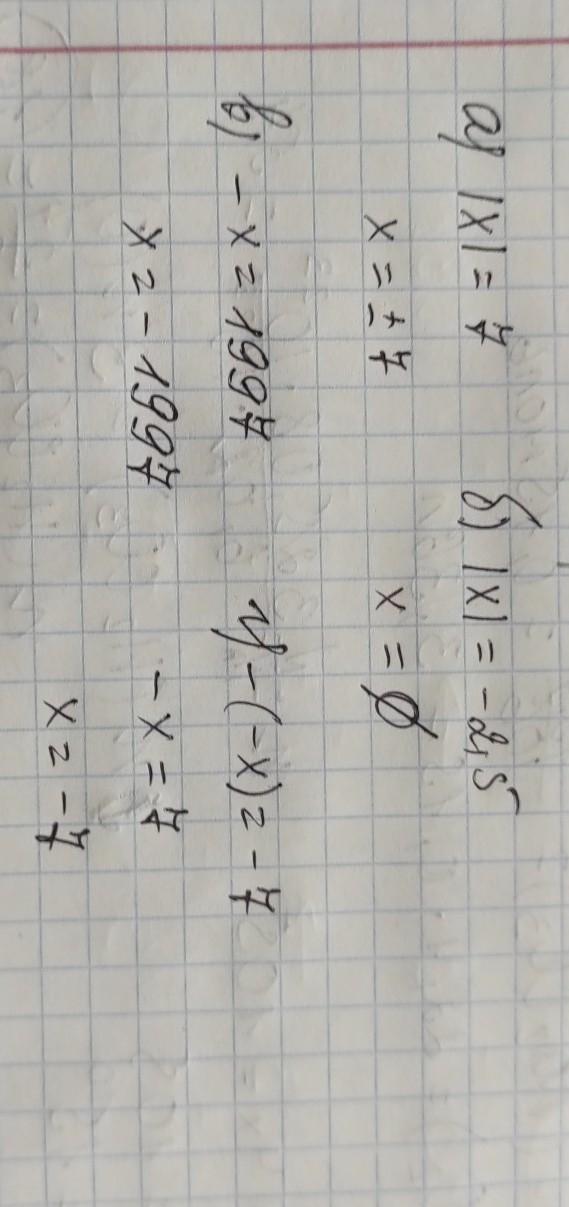 а) |x| = 7
x = ±7
б) |x| = -2,5
x = ∅
в) -x = 1997
x = -1997
г) -(-x) = -7
-x = 7
x = -7